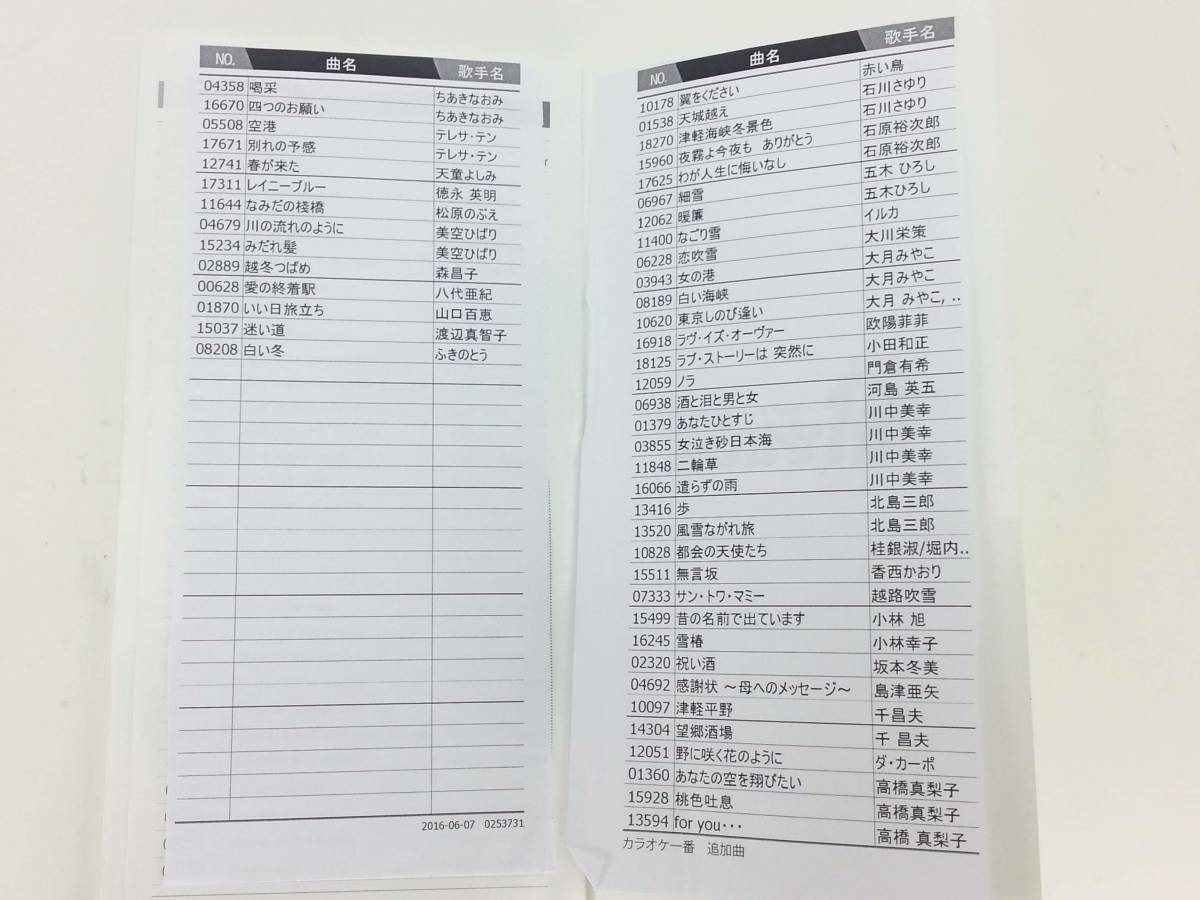 NO. 曲名 歌手名
04358 喝采 ちあきなおみ
16670 四つのお願い ちあきなおみ
05508 空港 テレサ・テン
17671 別れの予感 テレサ・テン
12741 春が来た 天童よしみ
17311 レイニーブルー 徳永 英明
11644 なみだの桟橋 松原のぶえ
04679 川の流れのように 美空ひばり
15234 みだれ髪 美空ひばり
02889 越冬つばめ 森昌子
00628 愛の終着駅 八代亜紀
01870 いい日旅立ち 山口百恵
15037 迷い道 渡辺真智子
08208 白い冬 ふきのとう
2016-06-07 0253731
NO. 曲名 歌手名
10178 翼をください 赤い鳥
01538 天城越え 石川さゆり
18270 津軽海峡冬景色 石川さゆり
15960 夜霧よ今夜も ありがとう 石原裕次郎
17625 わが人生に悔いなし 石原裕次郎
06967 細雪 五木 ひろし
12062 暖簾 五木ひろし
11400 なごり雪 イルカ
06228 恋吹雪 大川栄策
03943 女の港 大月みやこ
08189 白い海峡 大月みやこ
10620 東京しのび逢い 大月 みやこ, ..
16918 ラヴ・イズ・オーヴァー 欧陽菲菲
18125 ラブ・ストーリーは 突然に 小田和正
12059 ノラ 門倉有希
06938 酒と泪と男と女 河島 英五
01379 あなたひとすじ 川中美幸
03855 女泣き砂日本海 川中美幸
11848 二輪草 川中美幸
16066 遣らずの雨 川中美幸
13416 歩 北島三郎
13520 風雪ながれ旅 北島三郎
10828 都会の天使たち 桂銀淑/堀内..
15511 無言坂 香西かおり
07333 サン・トワ・マミー 越路吹雪
15499 昔の名前で出ています 小林 旭
16245 雪椿 小林幸子
02320 祝い酒 坂本冬美
04692 感謝状 ～母へのメッセージ～ 島津亜矢
10097 津軽平野 千昌夫
14304 望郷酒場 千 昌夫
12051 野に咲く花のように ダ・カーポ
01360 あなたの空を翔びたい 高橋真梨子
15928 桃色吐息 高橋真梨子
13594 for you・・・ 高橋 真梨子
カラオケ一番 追加曲